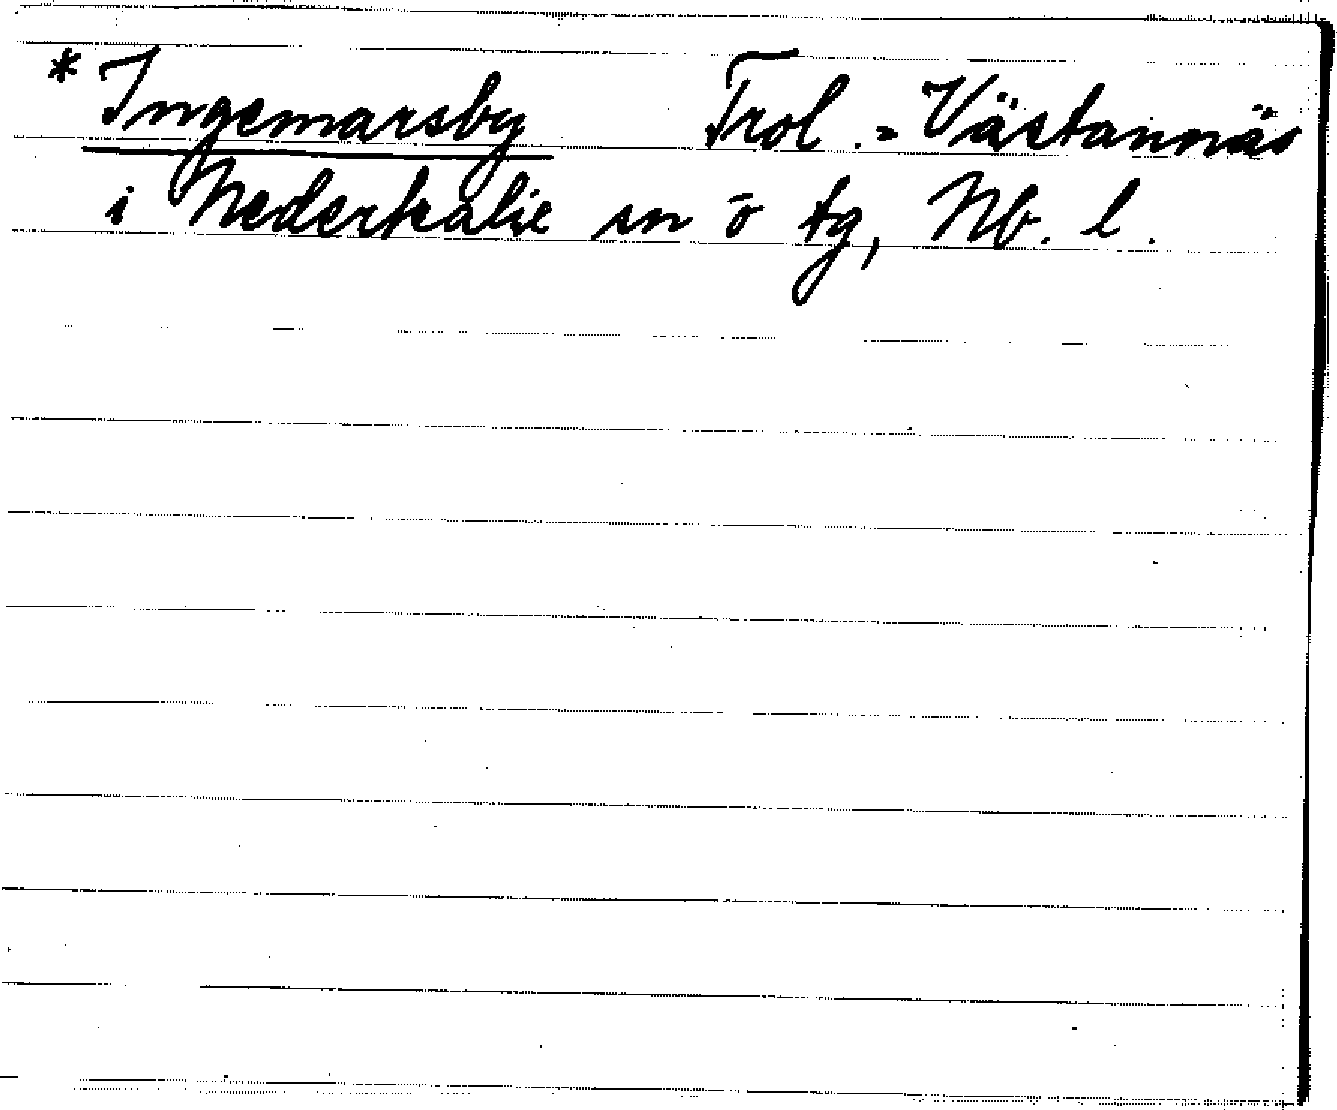 * Ingemarsby Trol. = Västannäs
i Nederkalix sn ö tg, Nb. l.